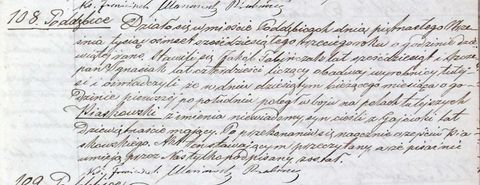 108. Poddębice
Działo się w mieście Poddębicach dnia piętnastego Wrze-
śnia tysiąc ośmset sześćdziesiątego trzeciego roku o godzinie dzie-
wiątej rano. Stawili się Jakób lat sześćdziesiąt i Szcze-
pan Ignasiak lat czterdzieści liczący obadwaj wyrobnicy tutej-
si i oświadczyli że w dniu dziesiątym bieżącego miesiąca o go-
dzinie pierwszej po południu poległ w boju na polach tutejszych
Piaskowski z imienia niewiadomy syn cieśli z lat
dziewiętnaście mający. Po przekonaniu się naocznie o zejściu Pia-
skowskiego. Akt ten stawającym przeczytany a że pisać nie
umieją przez Nas tylko podpisany został.
109.